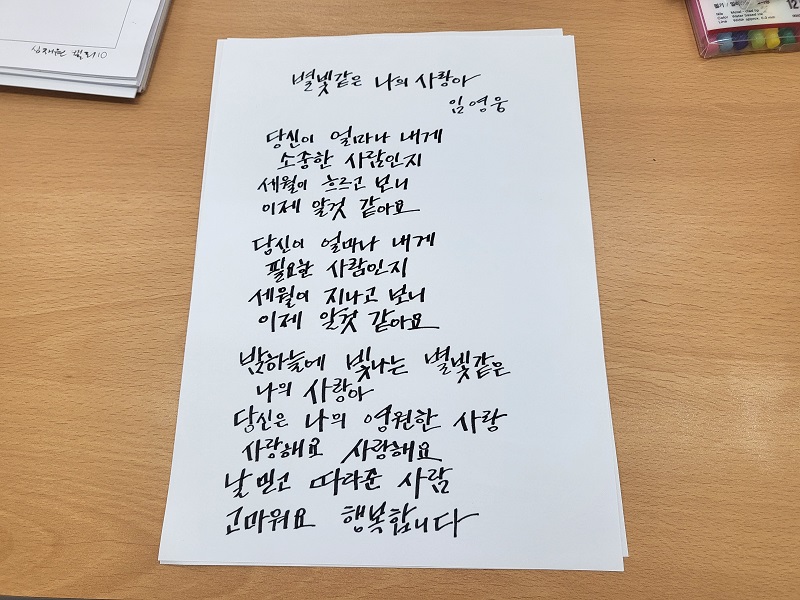 심재원 캘리10
별빛같은 나의 사랑아
임영웅
당신이 얼마나 내게
소중한 사람인지
세월이 흐르고 보니
이제 알것 같아요
당신이 얼마나 내게
필요한 사람인지
세월이 지나고 보니
이제 알것 같아요
밤하늘에 빛나는 별빛같은
나의 사랑아
당신은 나의 영원한 사랑
사랑해요 사랑해요
날 믿고 따라준 사람
고마워요 행복합니다
12